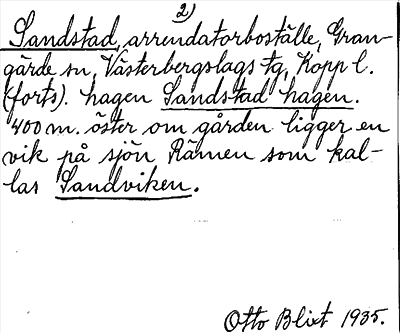 2)
Sandstad, arrendatorboställe, Gran-
gärde sn, Västerbergslags tg, Kopp l.
(forts). hagen Sandstad hagen.
400 m. öster om gården ligger en
vik på sjön Rämen som kal-
las Sandviken.
Otto Blixt 1935.